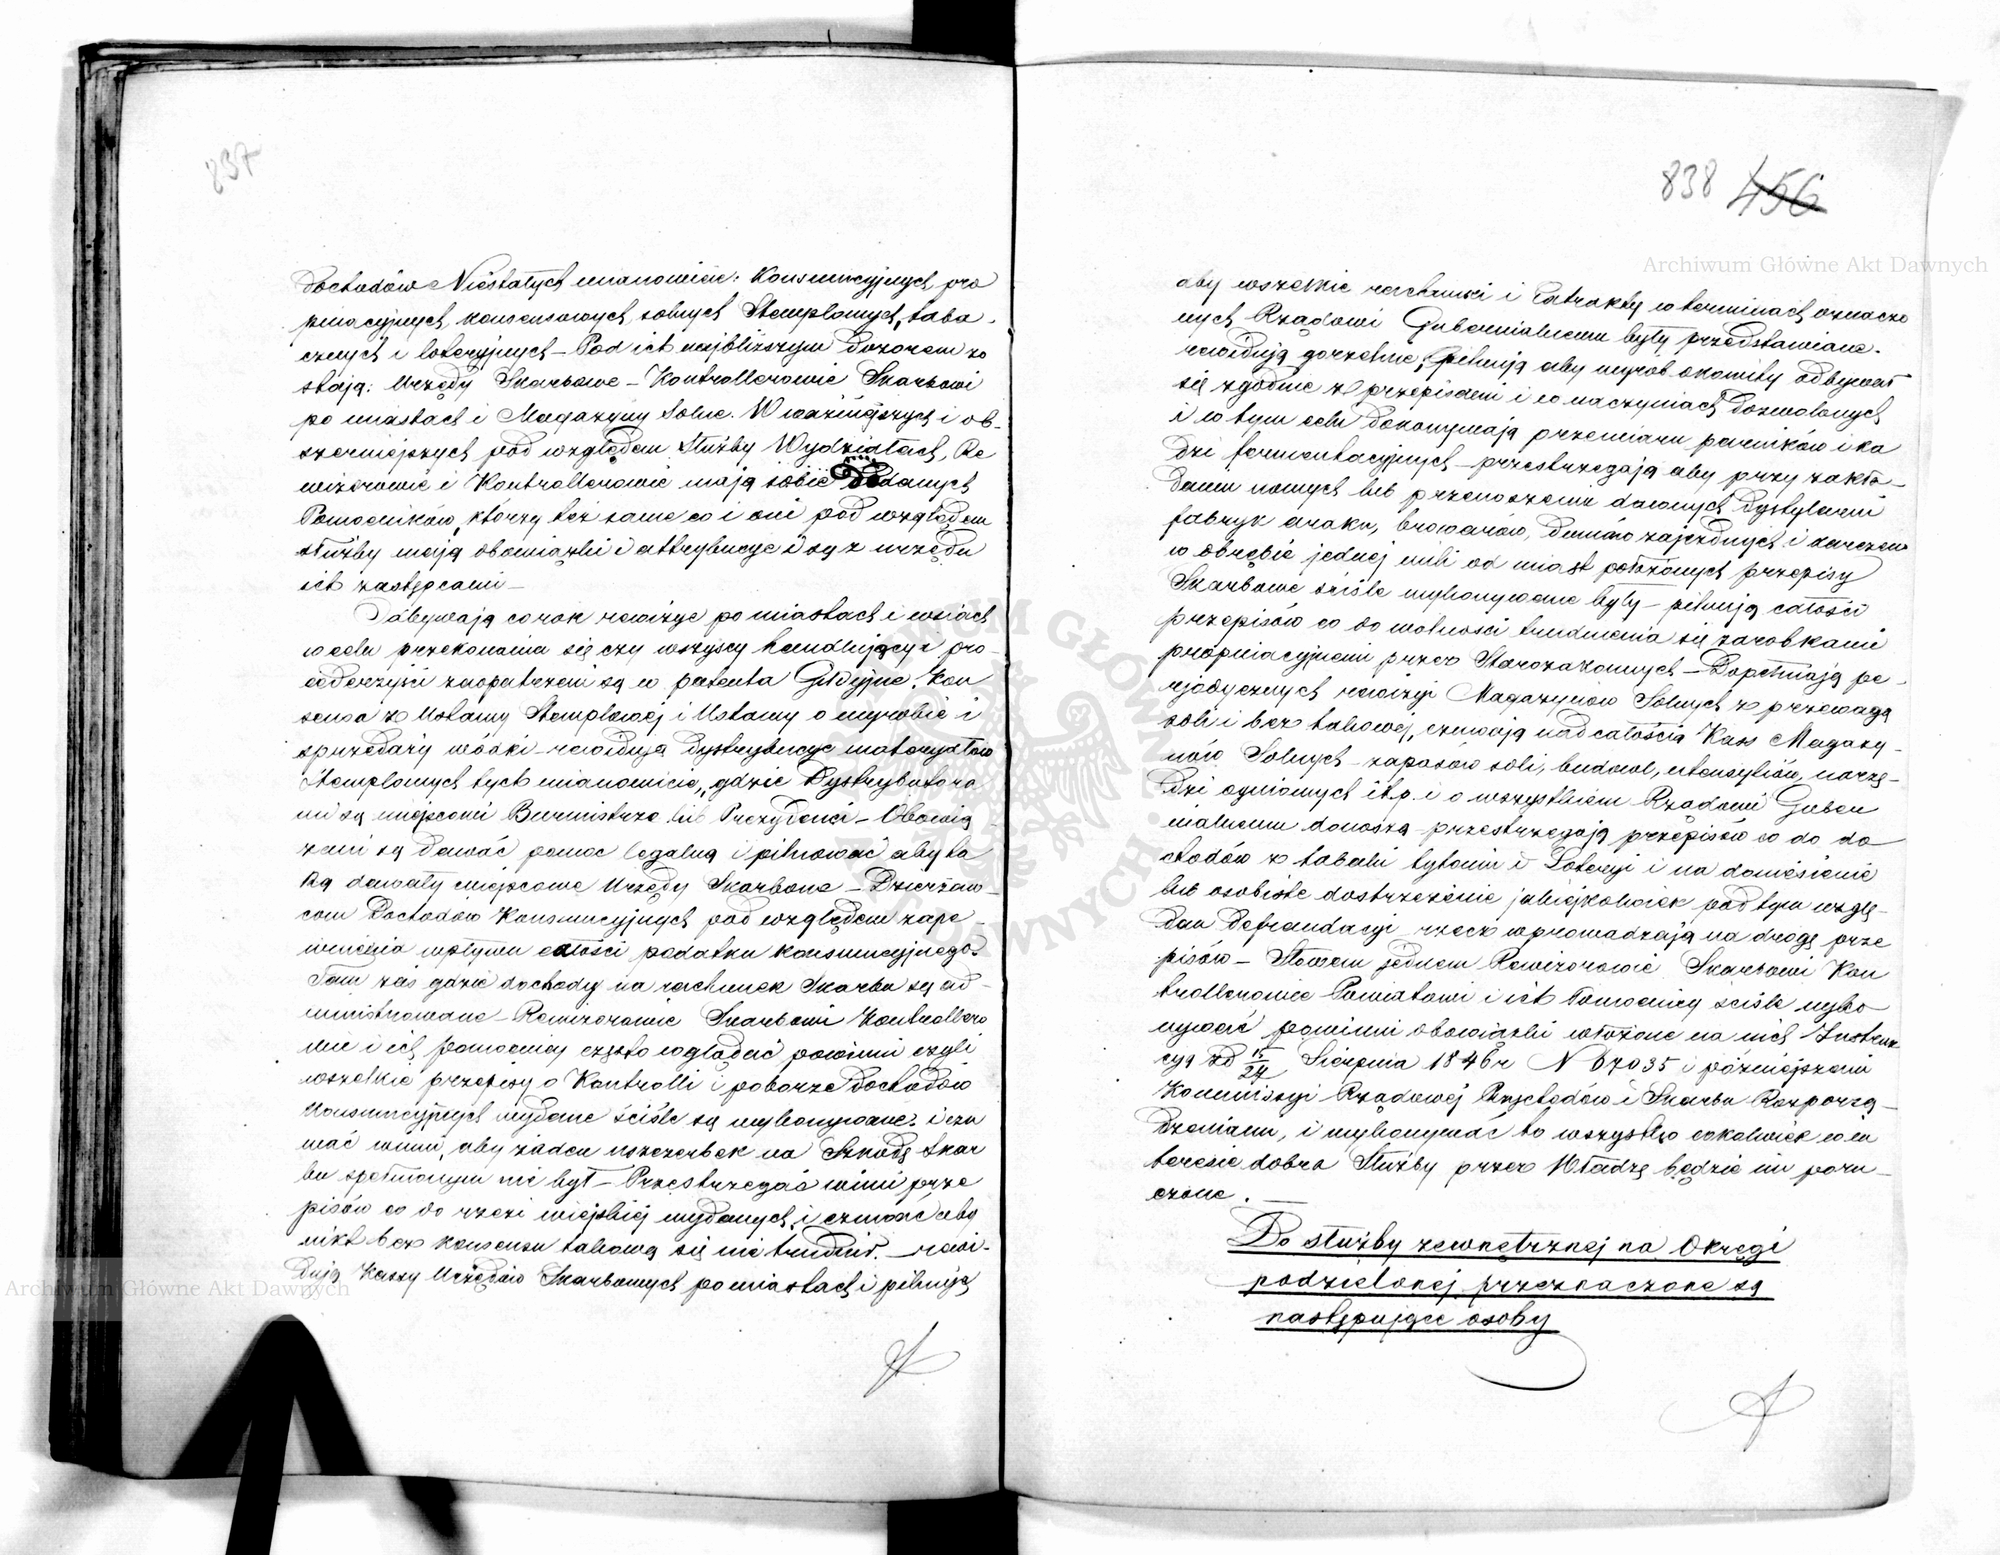 837
dochodów Niestałych mianowicie: Konsumcyjnych pro
pinacyjnych, konsensowych, solnych Stemplowych, taba-
cznych i loteryjnych – Pod ich najbliższym dozorem zo
stają: Urzędy Skarbowe – Kontrollerowie Skarbowi
po miastach i Magazyny Solne. W ważniejszych i ob-
szerniejszych pod względem Służby Wydziałach, Re
wizorowie i Kontrollerowie mają sobie dodanych
Pomocników, którzy też same co i oni pod względem
służby mają obowiązki i attrybucye i są z urzędu
ich zastępcami –
Odbywają corok rewizye po miastach i wsiach
w celu przekonania się czy wszyscy handlujący i pro-
cederzyści zaopatrzeni są w patenta Gildyjne, Kon
sensa z Ustawy Stemplowej i Ustawy o wyrobie i
sprzedaży wódki – rewidują dystrybucye materyałów
Stemplowych tych mianowicie, gdzie Dystrybutora
mi są miejscowi Burmistrze lub Prezydenci – Obowią
zani są dawać pomoc legalną i pilnować aby ta
ką dawały miejscowe Urzędy Skarbowe – Dzierżaw-
com Dochodów Konsumcyjnych pod względem zape-
wnienia wpływu całości podatku konsumcyjnego.
Tam zaś gdzie dochody na rachunek Skarbu są ad-
ministrowane – Rewizorowie Skarbowi Kontrollero
wie i ich pomocnicy często wglądać powinni czyli
wszelkie przepisy o Kontrolli i poborze Dochodów
Konsumcyjnych wydane ściśle są wykonywane. i czu
wać winni, aby żaden uszczerbek na Szkodę Skar
bu spełnionym nie był – Przestrzegać winni prze
pisów co do rzezi wiejskiej wydanych, i czuwać aby
nikt bez konsensu takową się nie trudnił. – rewi-
dują Kassy Urzędów Skarbowych po miastach i pilnują
838 456
aby wszelkie rachunki i Extrakty w terminach oznaczo
nych Rządowi Gubernialnemu były przedstawiane.
rewidują gorzelnie, pilnują aby wyrób okowity odbywał
się zgodnie z przepisami i w naczyniach dozwolonych
i w tym celu dokonywają przemiaru parników i ka
dzi fermentacyjnych – przestrzegają aby przy zakła-
daniu nowych lub przenoszeniu dawnych dystylarni
fabryk araku, browarów, domów zajezdnych i karczem
w obrębie jednej mili od miast położonych przepisy
Skarbowe ściśle wykonywane były – pilnują całości
przepisów co do wolności trudnienia się zarobkami
propinacyjnemi przez Starozakonnych – Dopełniają pe-
ryodycznych rewizyi Magazynów Solnych z przewagą
soli i bez takowej, czuwają nad całością Kass Magazy-
nów Solnych – zapasów soli, budowl, utensyliów, narzę-
dzi ogniowych i t.p. i o wszystkiem Rządowi Guber
nialnemu donoszą – przestrzegają przepisów co do do
chodów z tabaki tytoniu i Loteryi i na doniesienie
lub osobiste dostrzeżenie jakiejkolwiek pod tym wzglę-
dem Defraudacyi rzecz wprowadzają na drogę prze
pisów – Słowem jednem Rewizorowie Skarbowi Kon
trollerowie Powiatowi i ich Pomocnicy ściśle wyko-
nywać powinni obowiązki włożone na nich Instruk
cyą z d 15/27 Sierpnia 1846 r N 67035 i późniejszemi
Kommissyi Rządowej Przychodów i Skarbu Rozporzą-
dzeniami, i wykonywać to wszystko cokolwiek w in
teresie dobra Służby przez Władzę będzie im poru-
czone. –
Do służby zewnętrznej na Okręgi
podzielonej przeznaczone są
następujące osoby
Archiwum Główne Akt Dawnych
Archiwum Główne Akt Dawnych